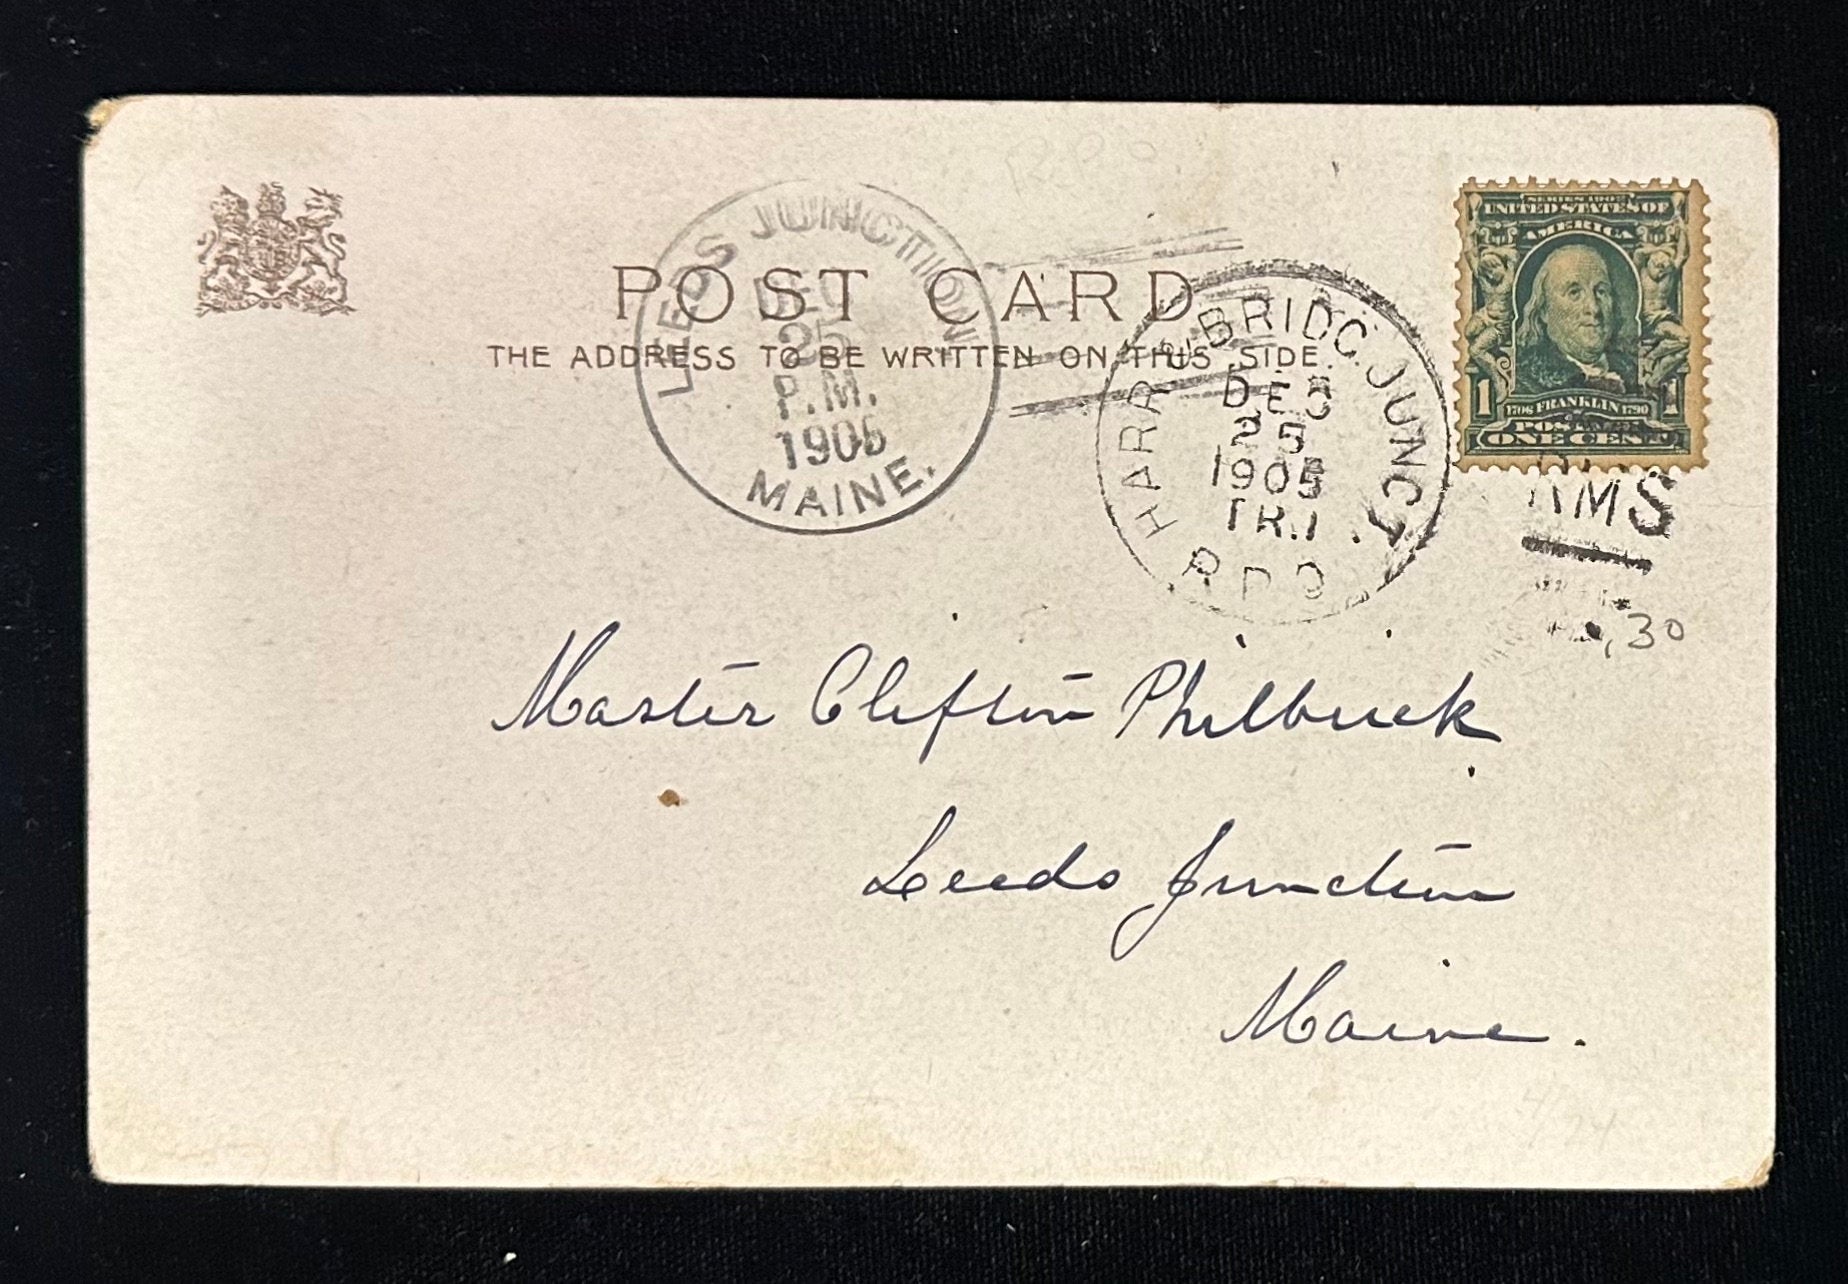 POST CARD
THE ADDRESS TO BE WRITTEN ON THIS SIDE.
LEEDS JUNCTION
DEC
25
P.M.
1905
MAINE.
BRIDG. JUNCT.
DEC
25
1905
TR.1
R.P.O.
RMS
SERIES 1902
UNITED STATES OF
AMERICA
1 1706 FRANKLIN 1790 1
POSTAGE
ONE CENT
30
Master Clifton Philbrick
Leeds Junction
Maine.